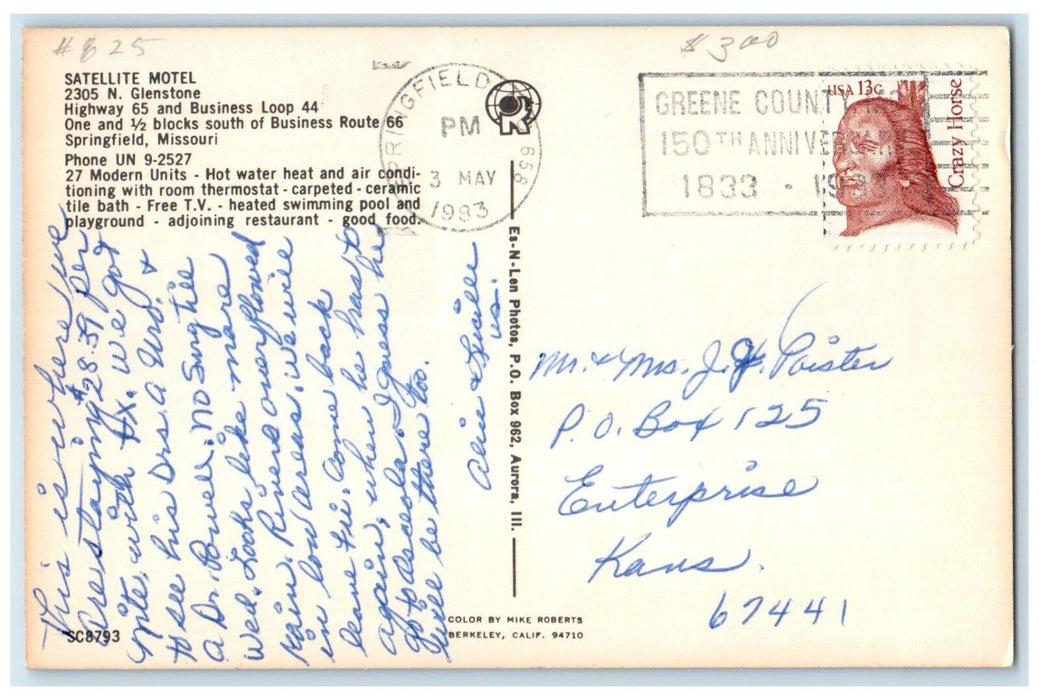 # 825
$ 300
SATELLITE MOTEL
2305 N. Glenstone
Highway 65 and Business Loop 44
One and ½ blocks south of Business Route 66
Springfield, Missouri
Phone UN 9-2527
27 Modern Units - Hot water heat and air condi-
tioning with room thermostat - carpeted - ceramic
tile bath - Free T.V. - heated swimming pool and
playground - adjoining restaurant - good food.
SPRINGFIELD
658
PM
3 MAY
1983
GREENE COUNTY
150TH ANNIVERSARY
1833 - 198
USA 13c
Crazy Horse
This is where we
are staying $28.39 per
nite, with tx. We got
to see his Drs. a Uro. &
a Dr. Powell. No Surg till
Wed. Looks like more
rain. Rivers overflowed
in low areas. We will
leave Fri. Come back
again, when he has to
go to Osceola. I guess he
will be there too.
Alice &
us.
Es-N-Len Photos, P.O. Box 962, Aurora, Ill.
Mr. & Mrs. J. F. Poister
P.O. Box 125
Enterprise
Kans.
67441
SC8793
COLOR BY MIKE ROBERTS
BERKELEY, CALIF. 94710